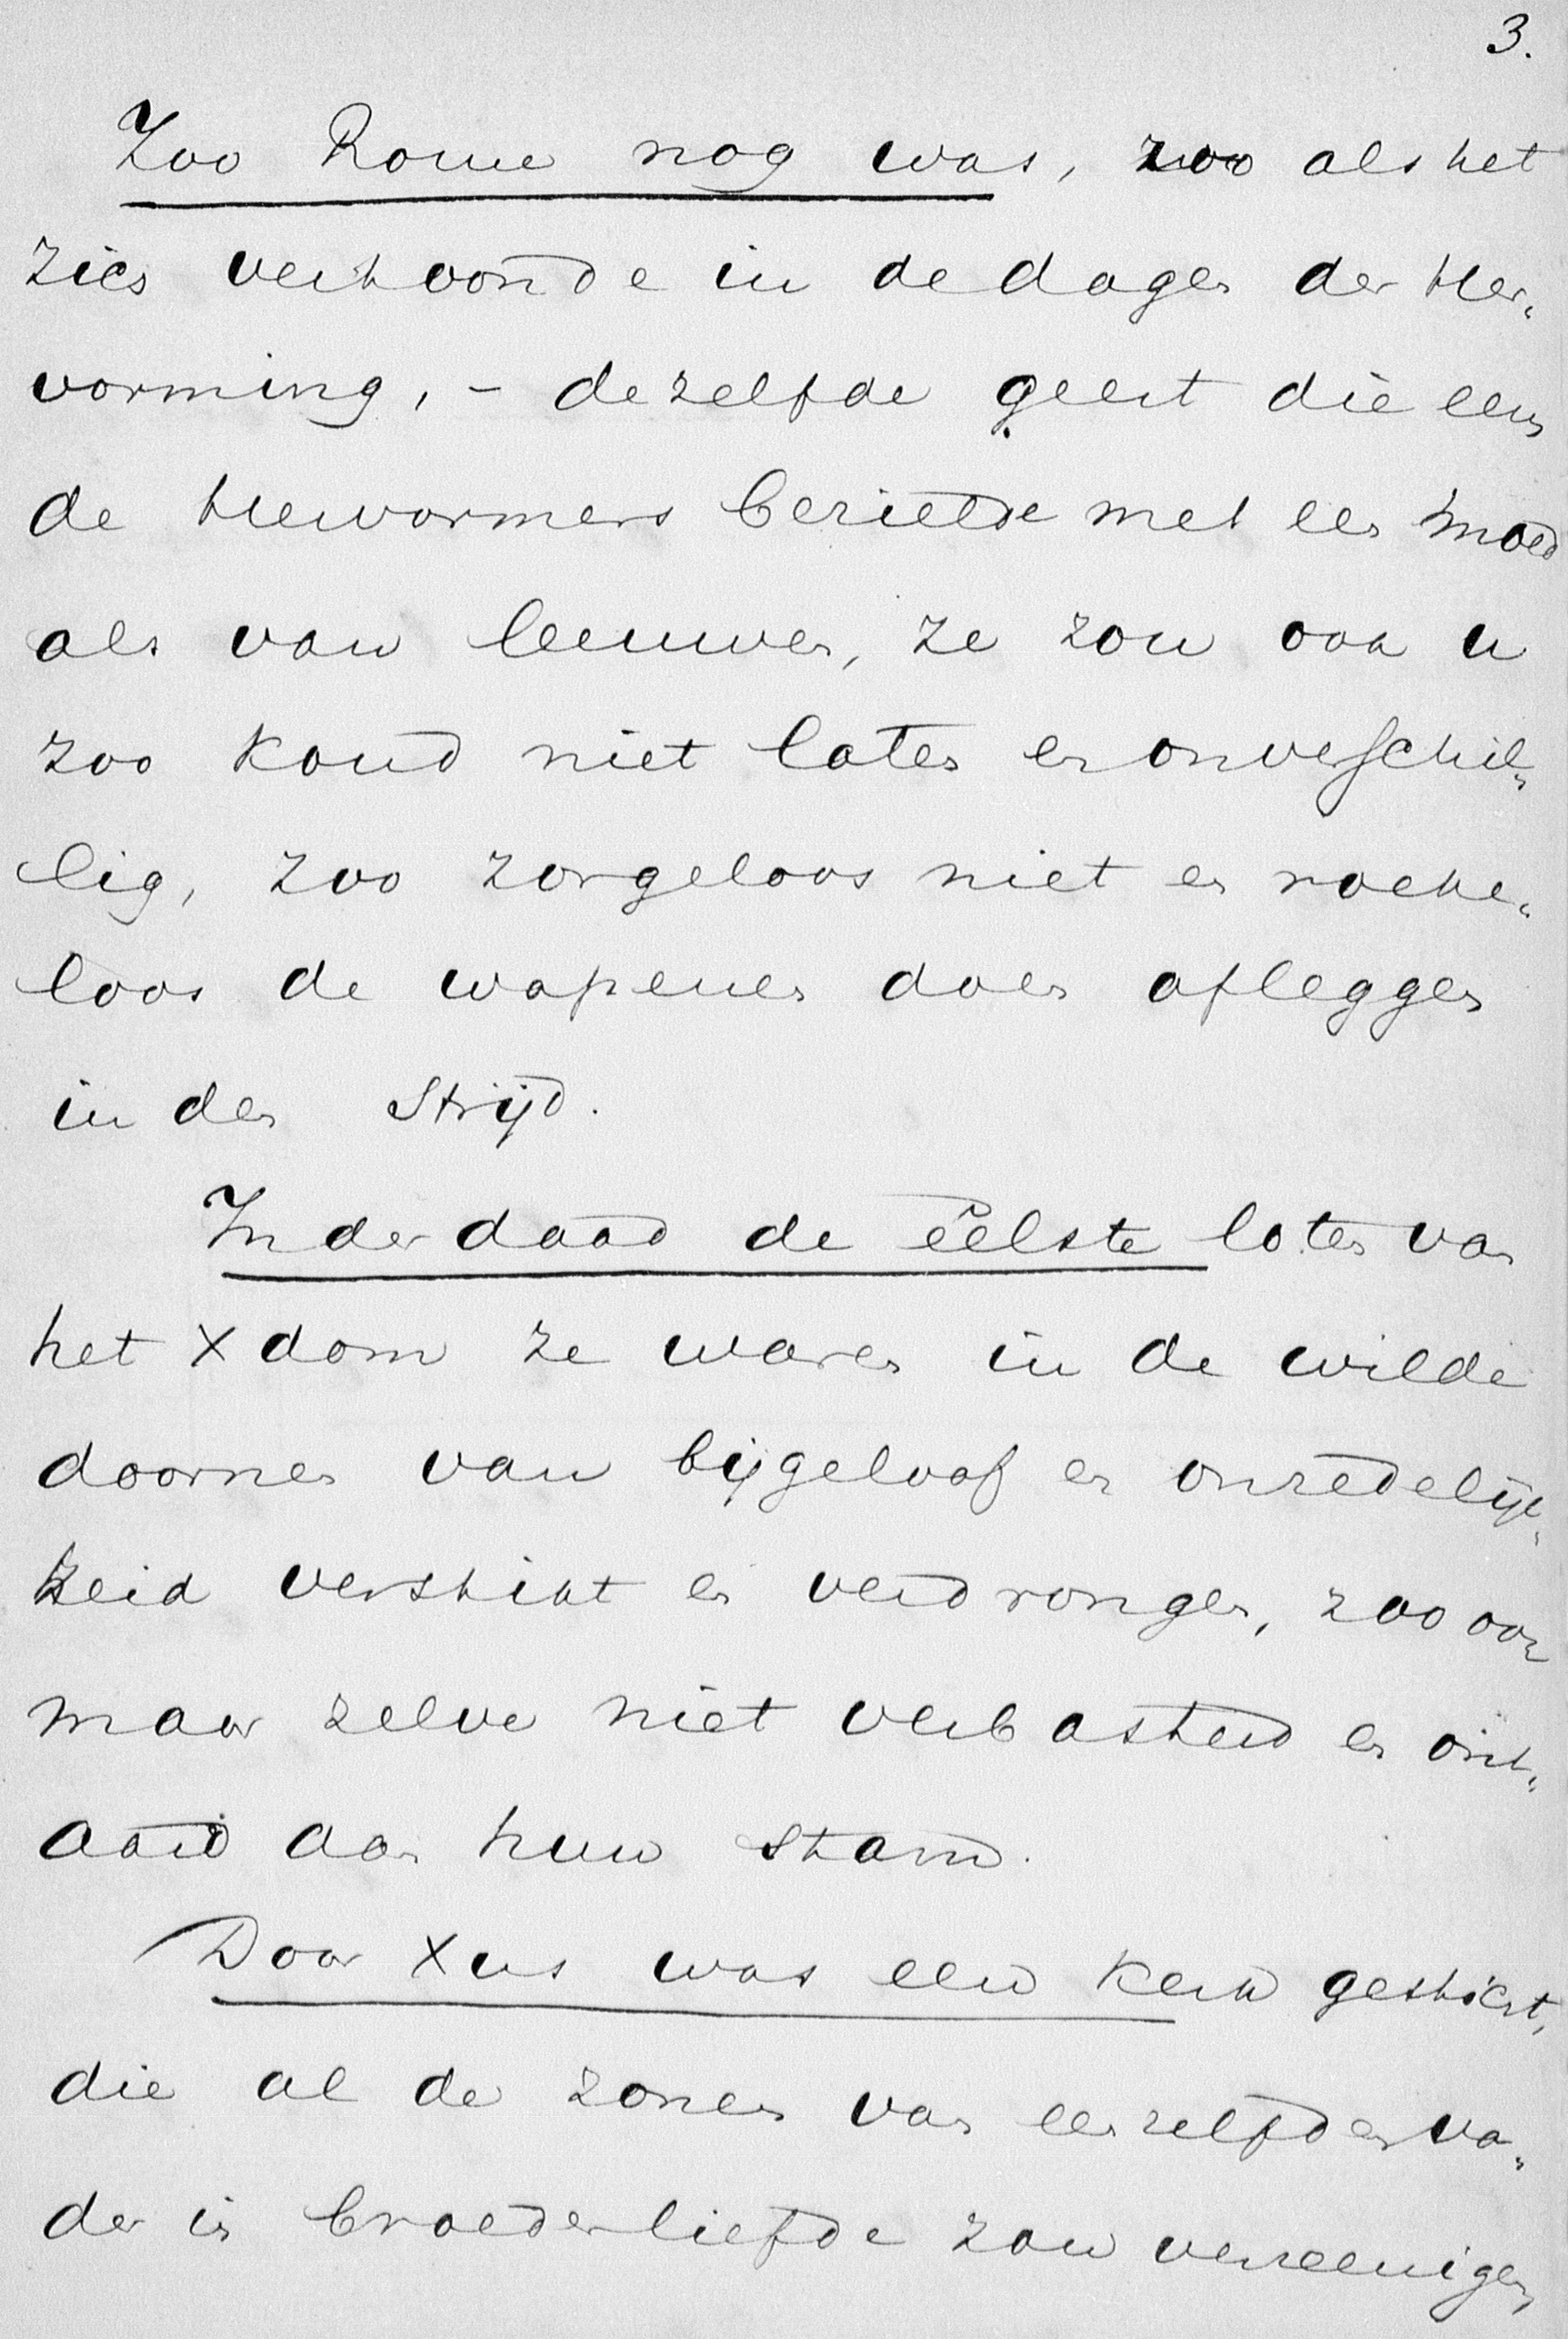 3.
Zoo Rome nog was, zoo als het
zich vertoonde in de dagen der Her„
vorming, – dezelfde geest die eens
de Hervormers bezielde met een moed
als van leeuwen, ze zou ook u
zoo koud niet laten en onverschil„
lig, zoo zorgeloos niet en roeke„
loos de wapenen doen afleggen
in den strijd.
In der daad de eêlste loten van
het Xdom ze waren in de wilde
doornen van bijgeloof en onredelijk„
heid verstikt en verdrongen, zoo ook
maar zelve niet verbasterd en ont„
aard aan hun stam.
Door Xus was een kerk gesticht,
die al de zonen van eenzelfden va„
der in broederliefde zou vereenigen,